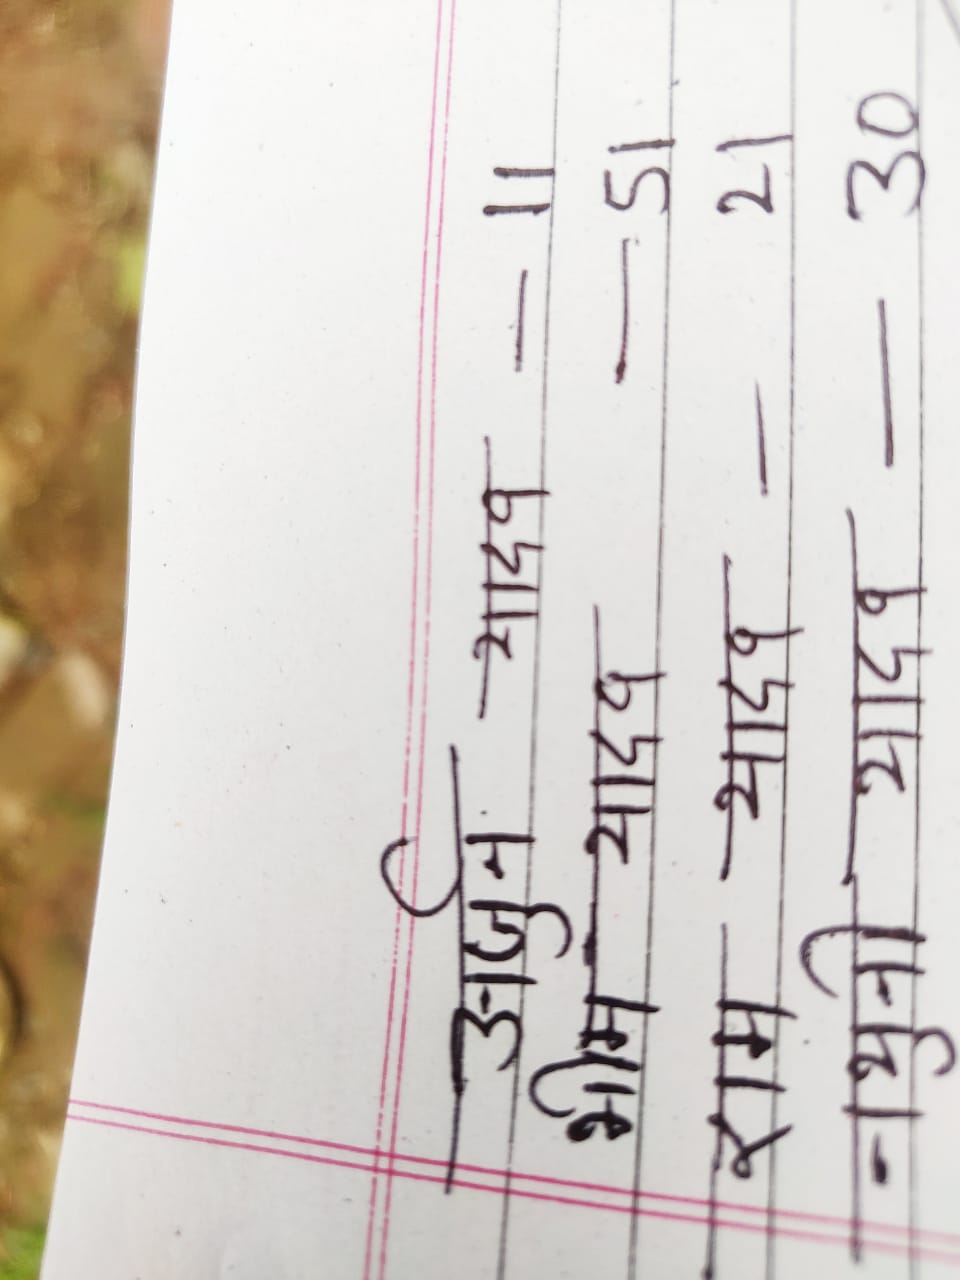 अर्जुन यादव — 11
भीम यादव — 51
राम यादव — 21
नथुनी यादव — 30